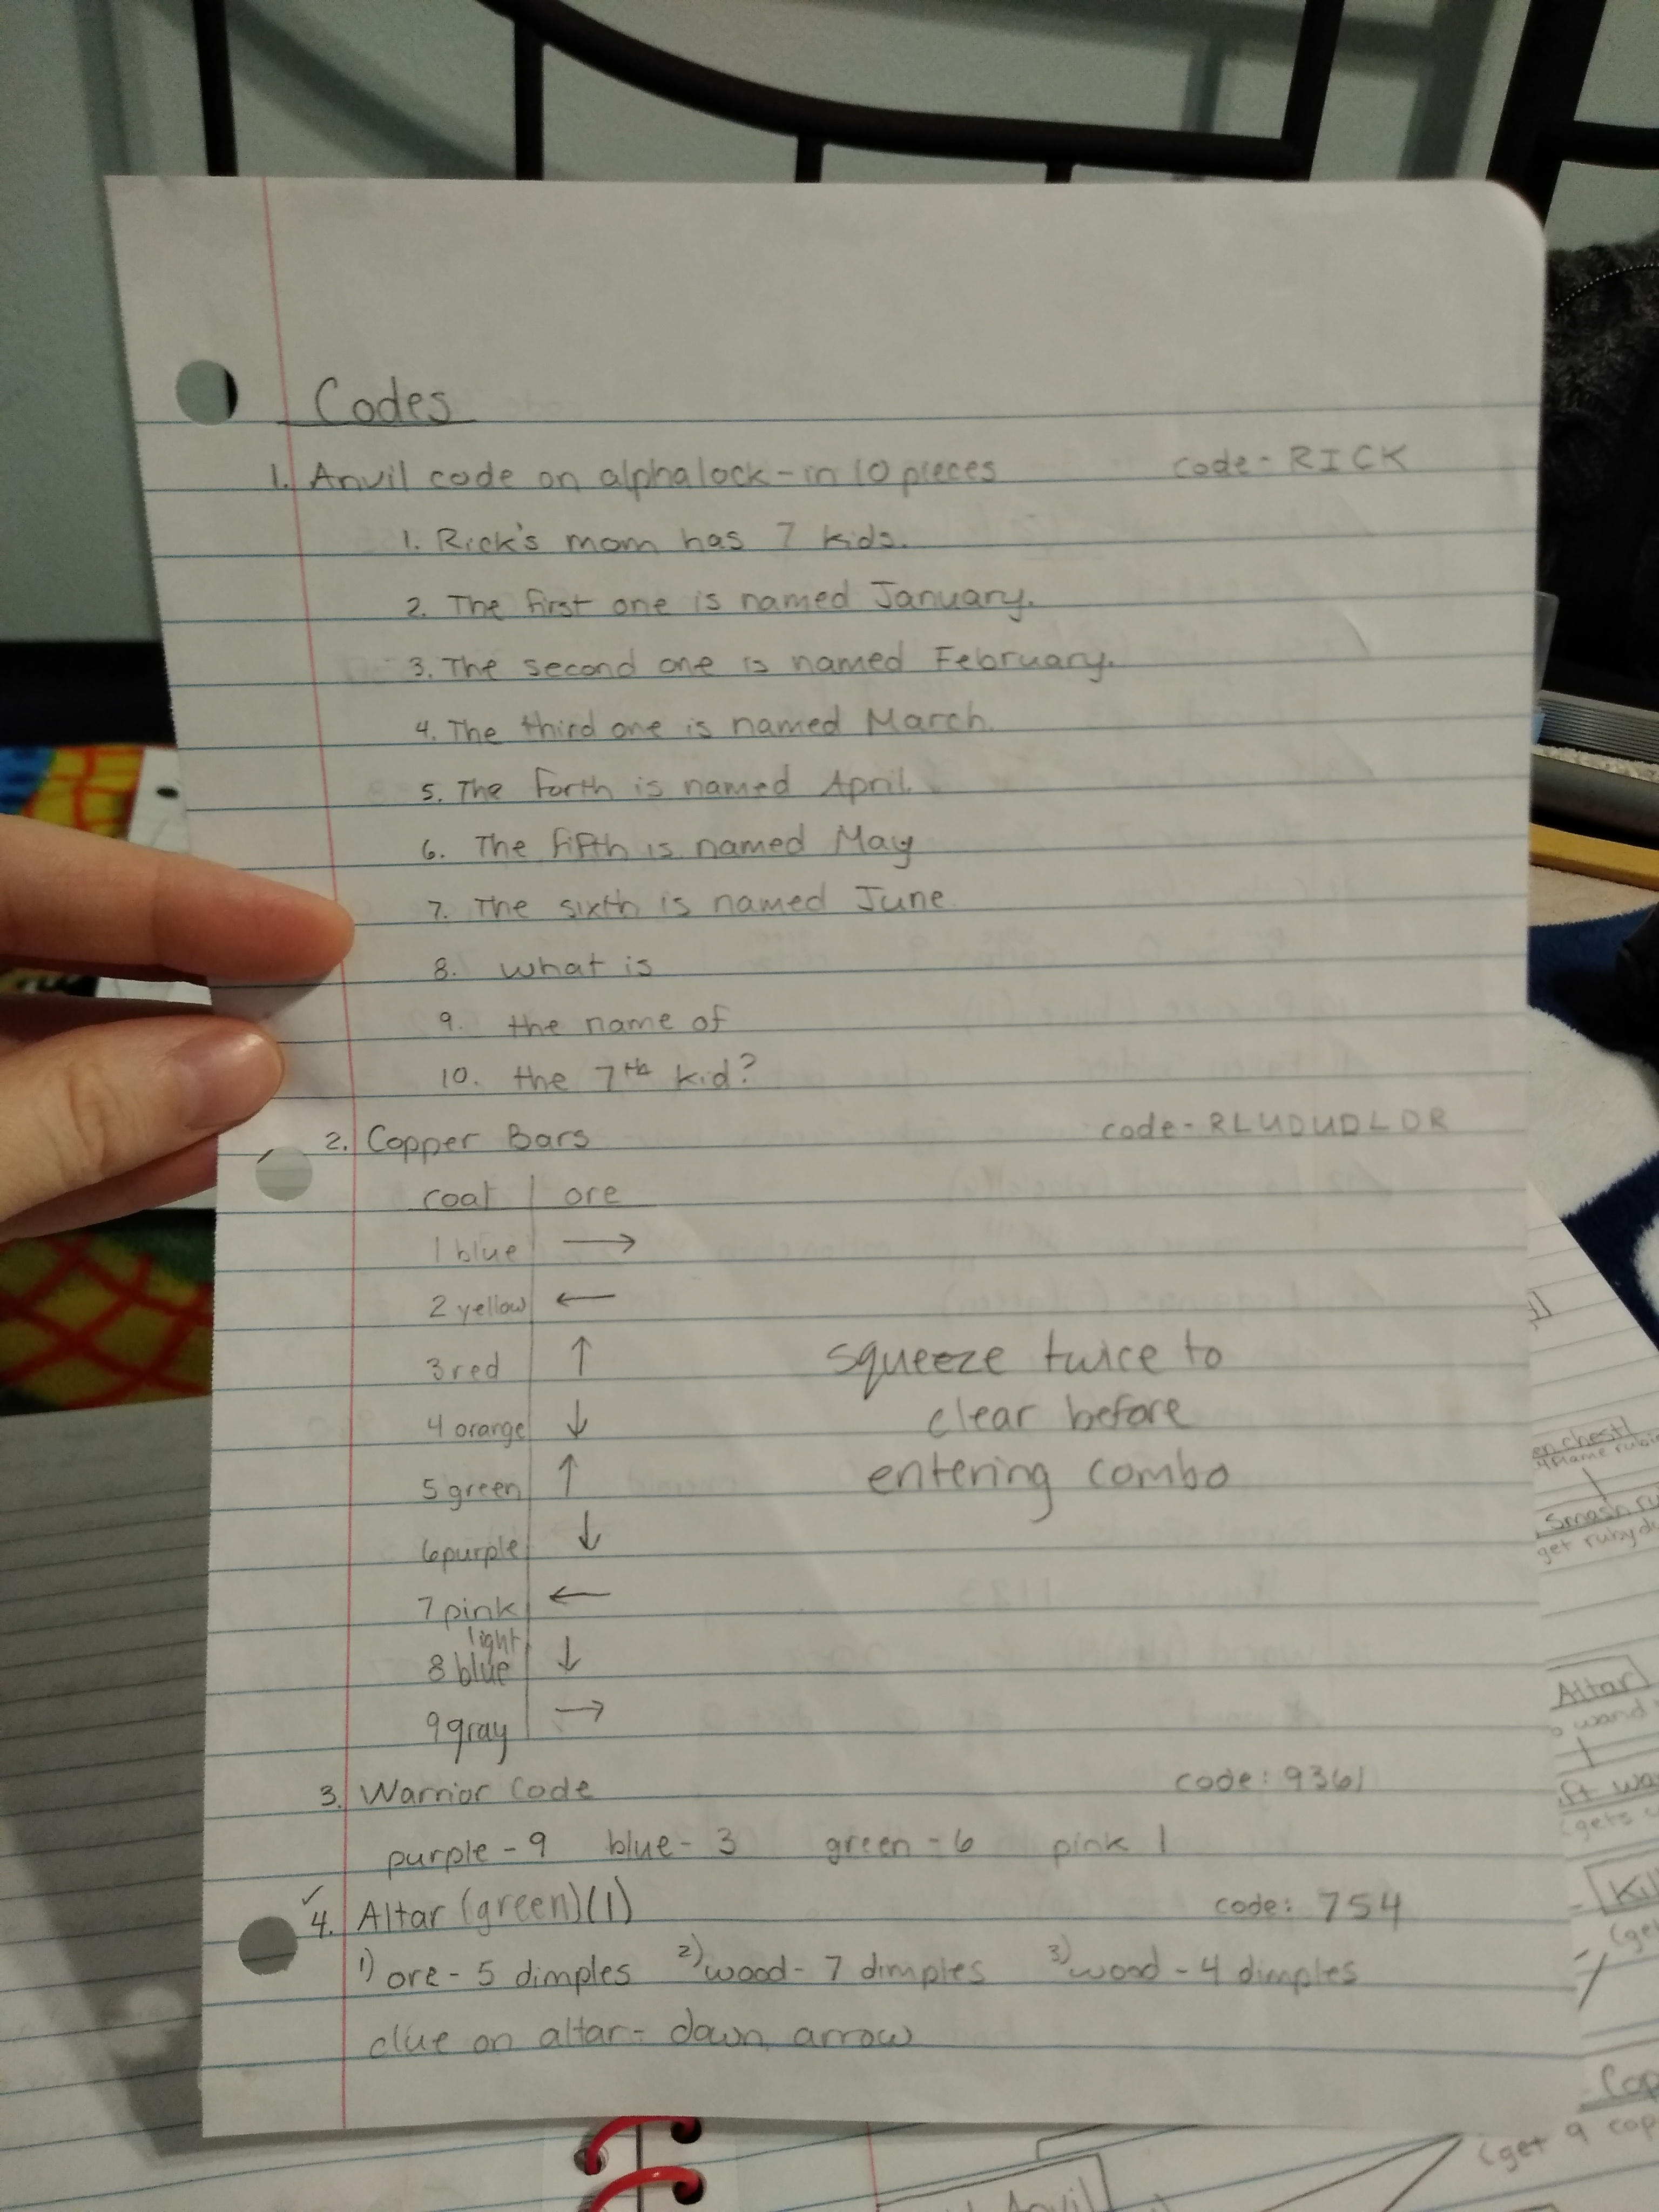 Codes
1. Anvil code on alphalock - in 10 pieces code - RICK
1. Rick's mom has 7 kids.
2. The first one is named January.
3. The second one is named February.
4. The third one is named March.
5. The forth is named April.
6. The fifth is named May
7. The sixth is named June.
8. what is
9. the name of
10. the 7th kid?
2. Copper Bars code - RLUDUDLDR
coal | ore
1 blue →
2 yellow ←
3 red ↑
4 orange ↓
5 green ↑
6 purple ↓
7 pink ←
8 light blue ↓
9 gray →
squeeze twice to
clear before
entering combo
3. Warrior Code code: 9361
purple - 9 blue - 3 green - 6 pink 1
✓
4. Altar (green)(1) code: 754
1) ore - 5 dimples 2) wood - 7 dimples 3) wood - 4 dimples
clue on altar - down arrow
en chest
Smash ru
get ruby d
Altar
wand
ft wa
(gets
Kil
(ge
Cop
(get 9 cop
Anvil